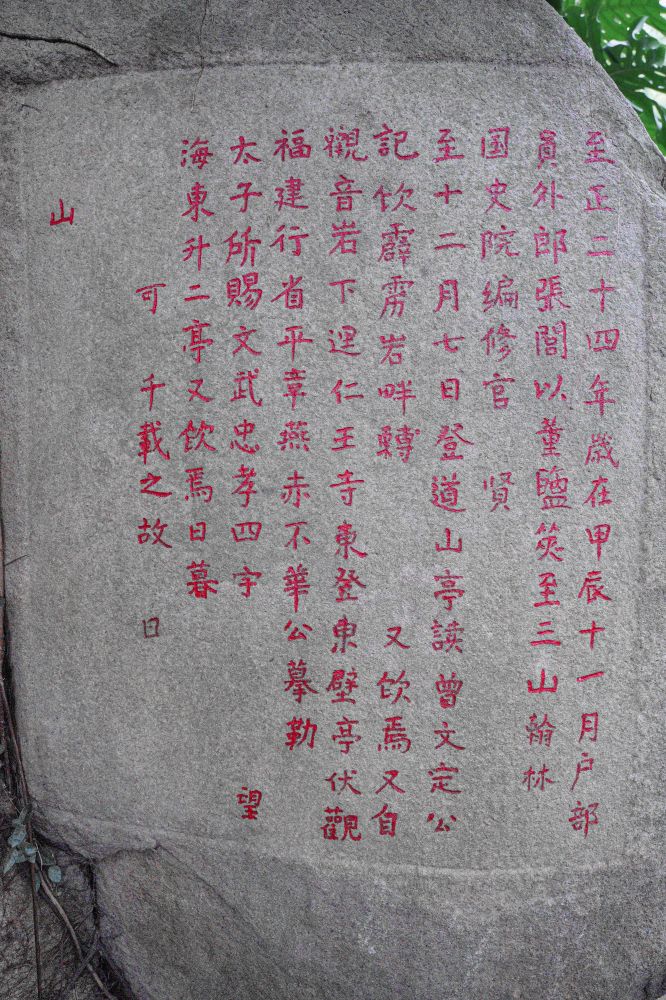 至正二十四年歲在甲辰十一月户部
員外郎張閣以董鹽筴至三山翰林
国史院编修官 贤
至十二月七日登道山亭读曾文定公
記饮霹雳岩畔轉 又饮焉又自
觀音岩下逞仁王寺東登東壁亭伏觀
福建行省平章燕赤不華公摹勒
太子所賜文武忠孝四字 望
海東升二亭又饮焉日暮
可 千載之故 日
山